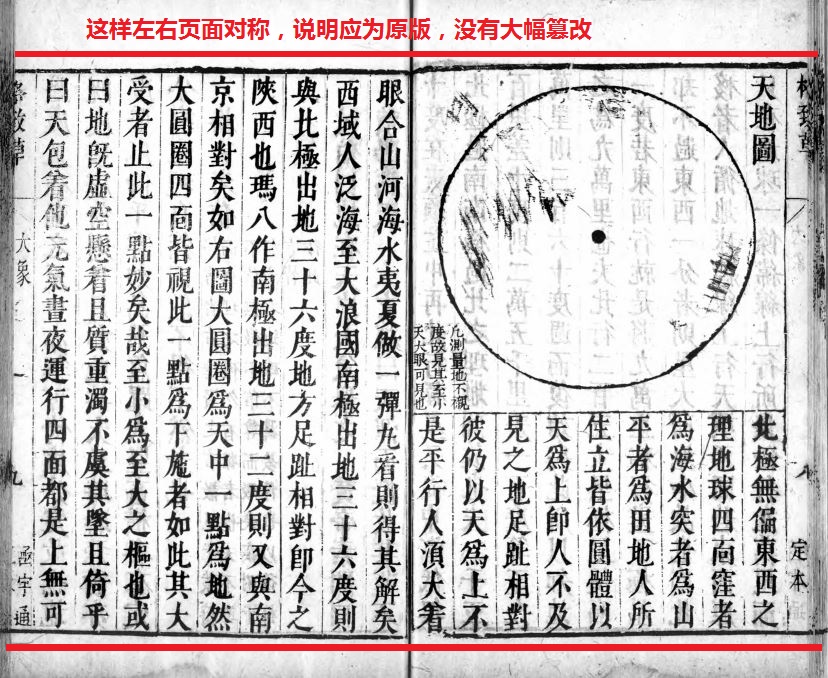 这样左右页面对称，说明应为原版，没有大幅篡改
格致草
八
定本
天地圖
度故見其至小
天大眼可見也
北極無偏東西之
理地球四面窪者
爲海水突者爲山
平者爲田地人所
住立皆依圓體以
天爲上卽人不及
見之地足趾相對
彼仍以天爲上不
是平行人湏大着
眼合山河海水夷夏做一彈丸看則得其解矣
西域人泛海至大浪國南極出地三十六度則
與北極出地三十六度地方足趾相對卽今之
陝西也瑪八作南極出地三十二度則又與南
京相對矣如右圖大圓圈爲天中一點爲地然
大圓圈四面皆視此一點爲下施者如此其大
受者止此一點妙矣哉至小爲至大之樞也或
曰地旣虛空懸着且質重濁不虞其墜且倚乎
曰天包着他元氣晝夜運行四面都是上無可
格致草
大象
九
函宇通